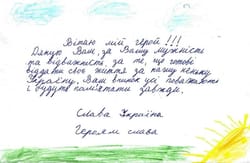 Вітаю мій герой!!!
Дякую Вам, за Вашу мужність
та відвижність, за те, що готові
віддати своє життя за нашу неньку
Україну. Ваш вчинок усі поважають
і будуть пам'ятати завжди.
Слава Україна
Героям слава